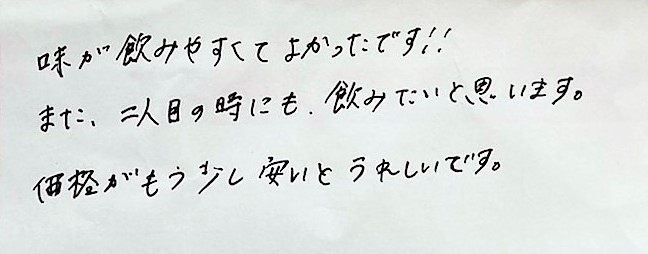 味が飲みやすくてよかったです!!
また、二人目の時にも、飲みたいと思います。
価格がもう少し安いとうれしいです。